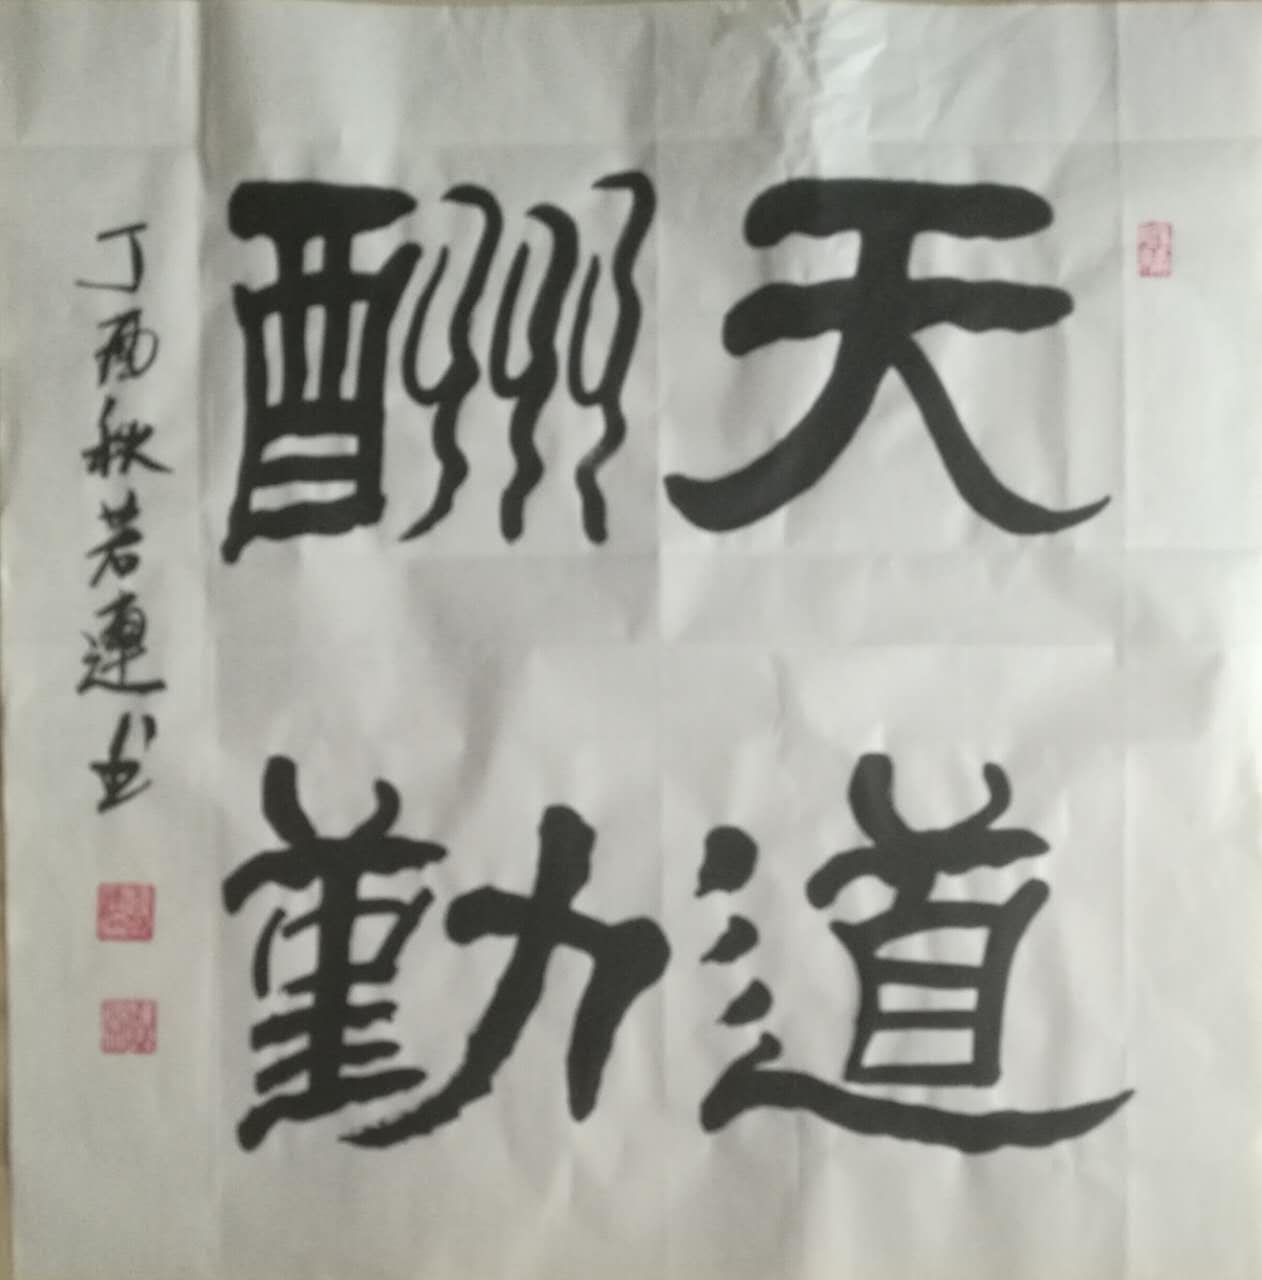 天道
酬勤
丁酉秋若蓮书